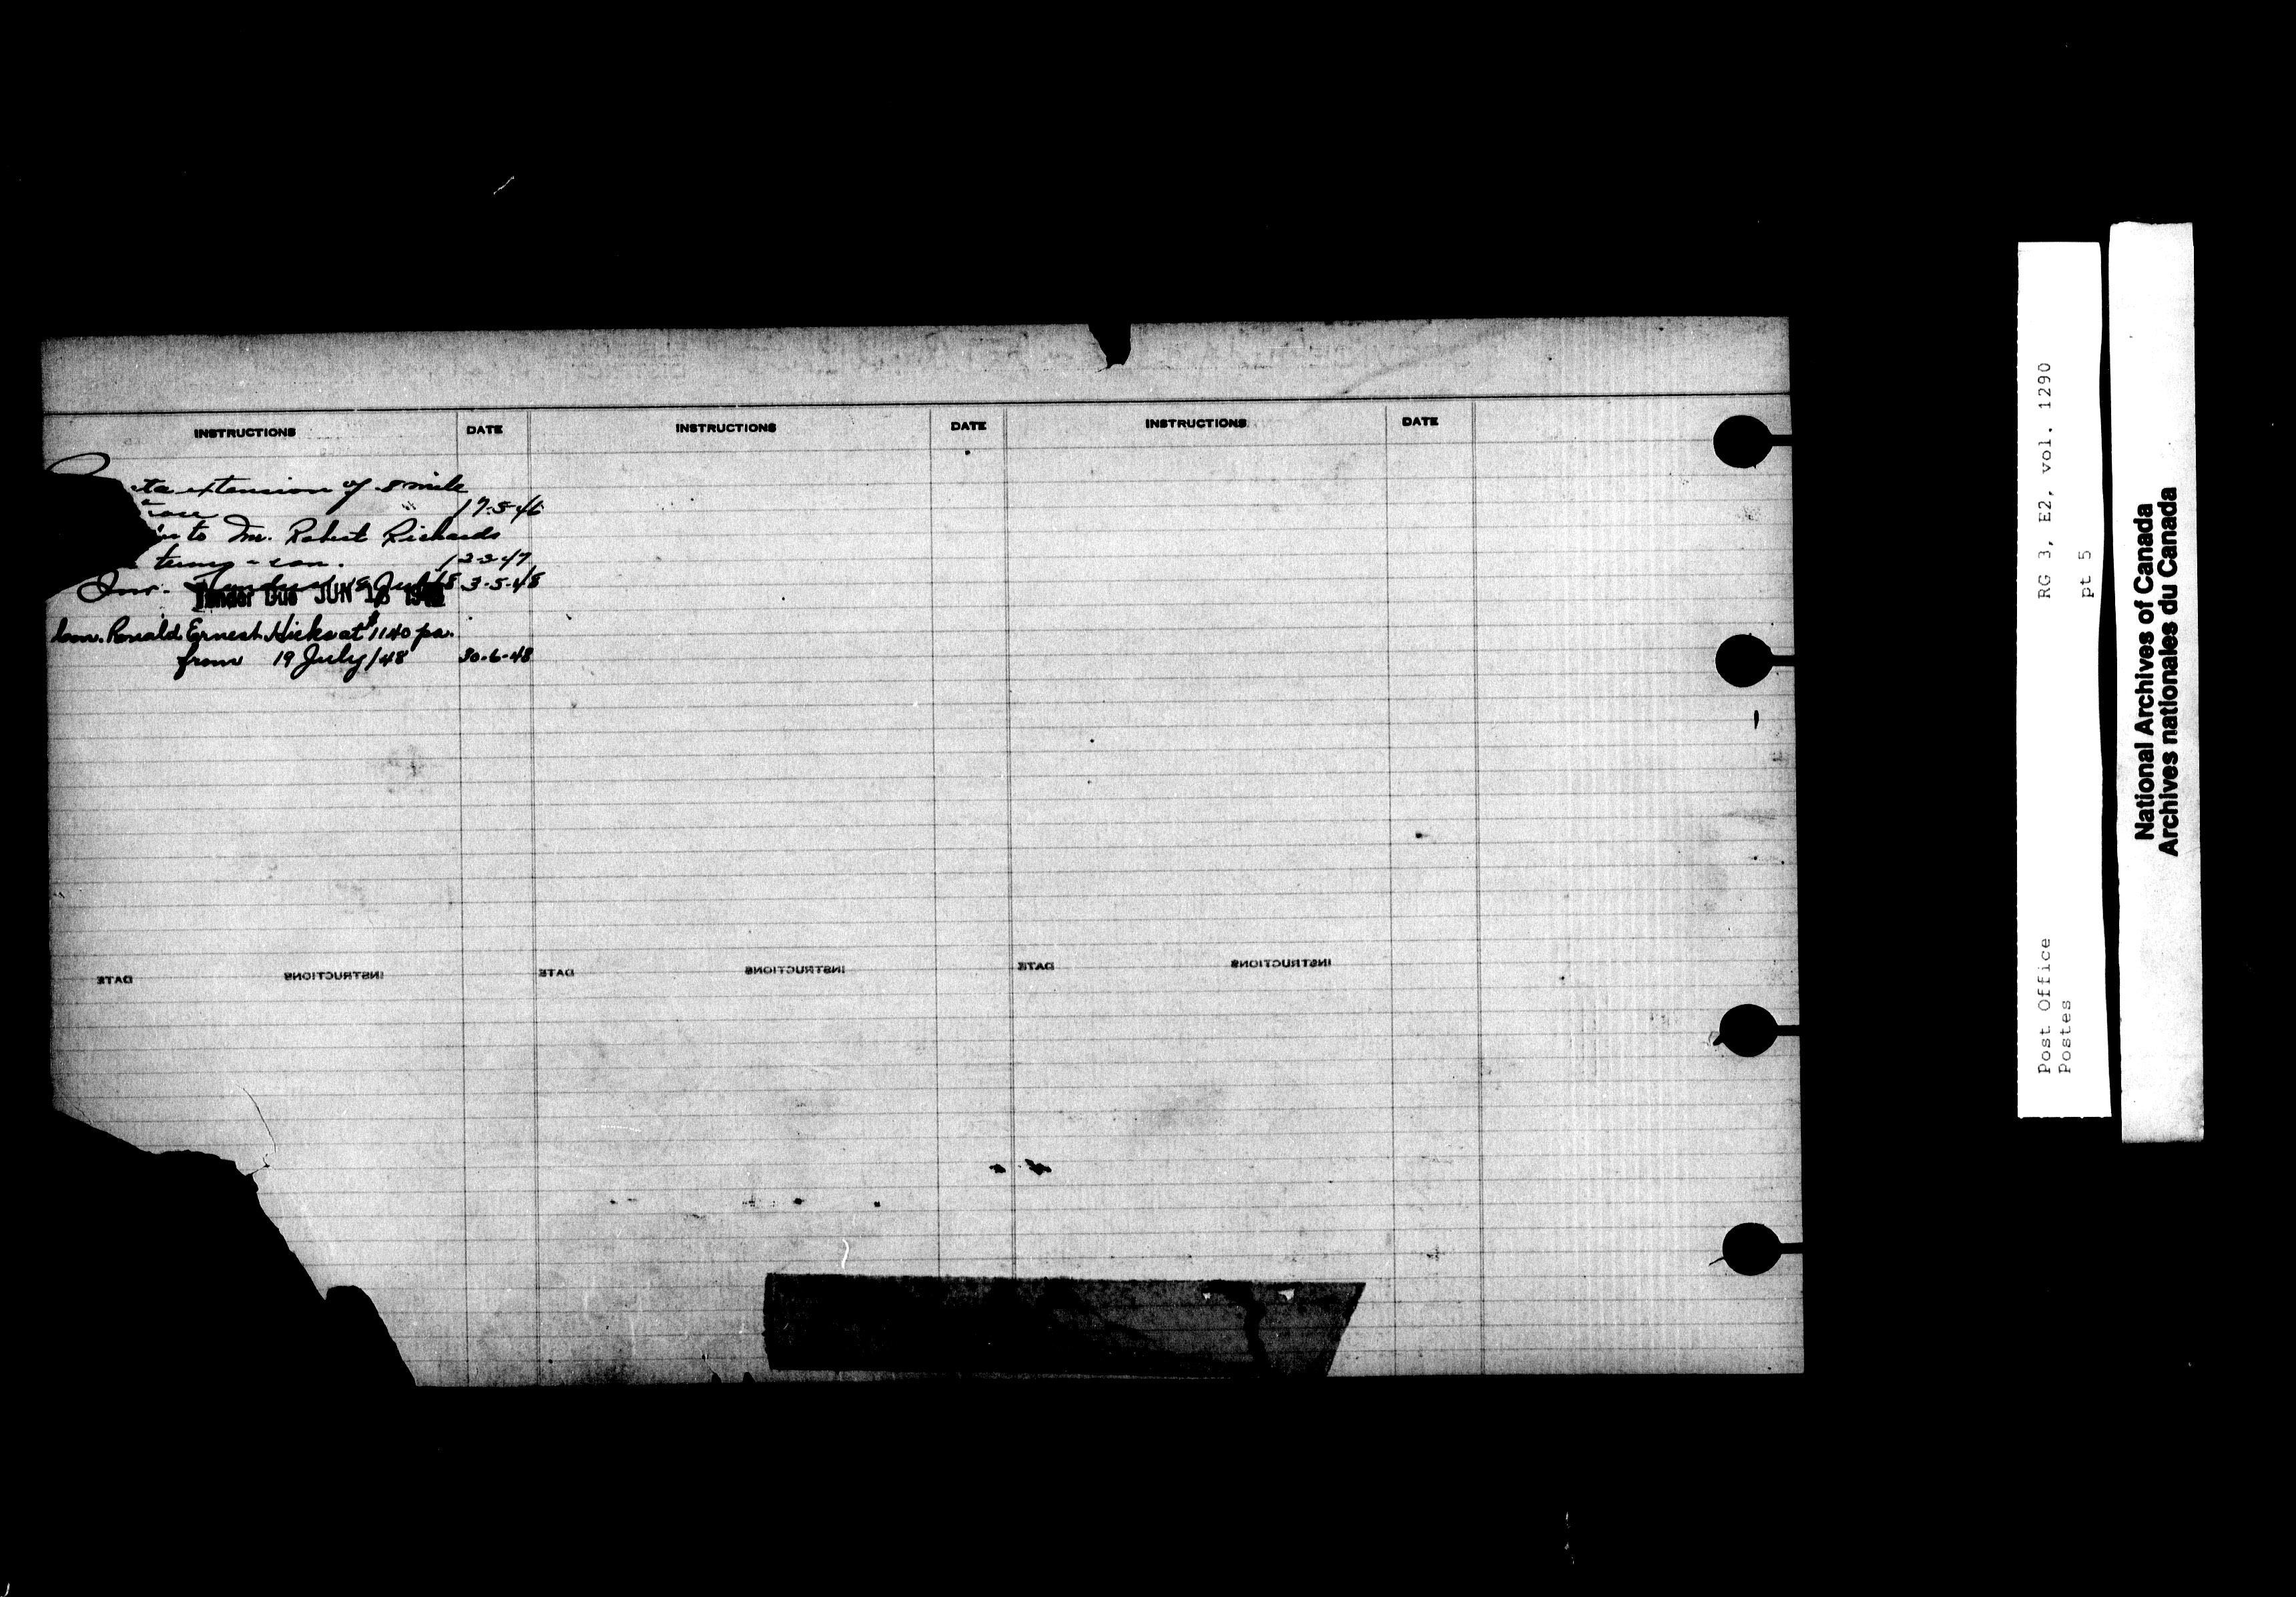 INSTRUCTIONS DATE INSTRUCTIONS DATE INSTRUCTIONS DATE
extension of 8 mile
17-5-46
to Mr. Robert Richards
temp - con. 12-2-47
Inv. 3-5-48
Tender Due JUN 18
Ronald Ernest Hicks at $1140 pa.
from 19 July/48 30-6-48
DATE INSTRUCTIONS DATE INSTRUCTIONS DATE INSTRUCTIONS
Post Office RG 3, E2, vol. 1290
Postes pt 5
National Archives of Canada
Archives nationales du Canada